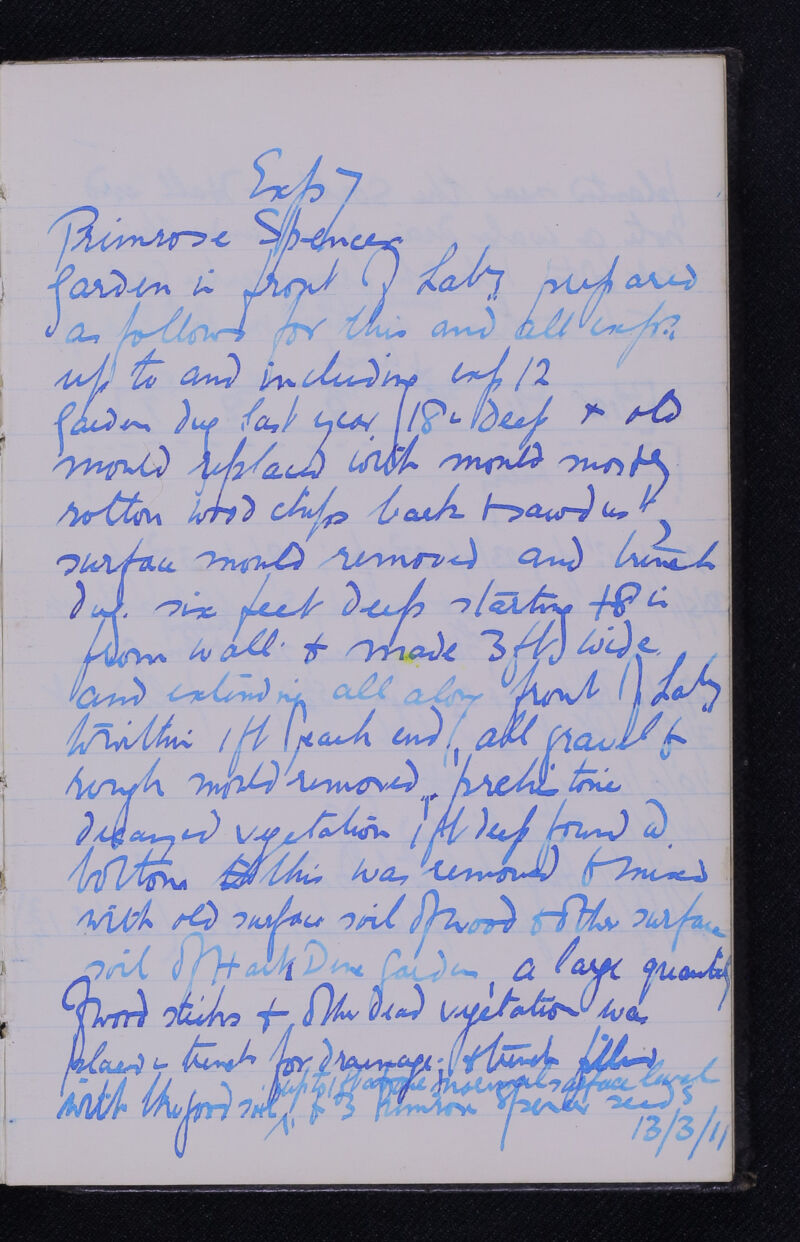 Exp 7
Primrose Spencer
Garden in front of Laby prepared
as follows for this and all exps.
up to and including exp 12
Garden dug last year 18in deep & old
mould replaced with mould mostly
rotton wood chips back & sawdust
surface mould removed and trench
dug. six feet deep starting 18 in
from wall & made 3 ft wide
and extending all along front of Laby
to within 1 ft of each end, all gravel &
rough mould removed, prehistoric
decayed vegetation 1 ft deep found at
bottom this was removed & mixed
with old surface soil of wood & other surface
soil of Dene Garden a large quantity
of wood sticks & other dead vegetation was
placed in trench for drainage & trench filled
up to 1 ft above normal surface level
with the good soil, & 3 Primrose Spencer seeds
13/3/11